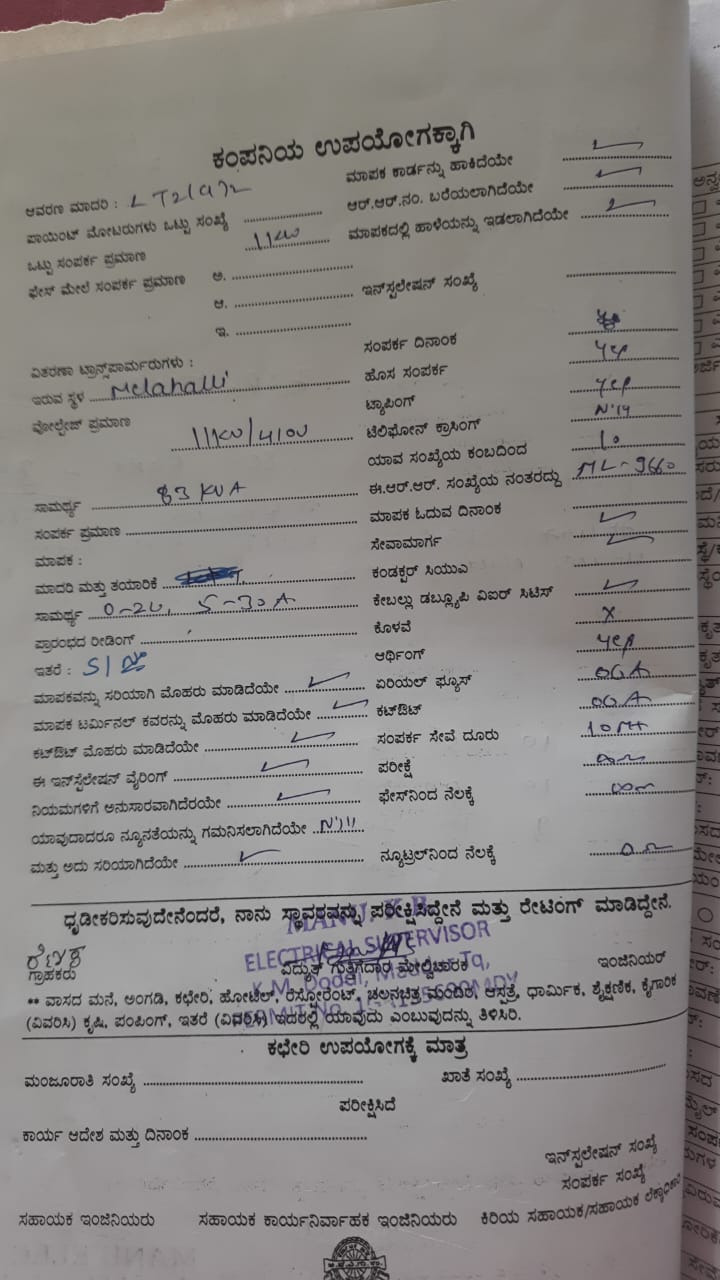 ಕಂಪನಿಯ ಉಪಯೋಗಕ್ಕಾಗಿ
ಆವರಣ ಮಾದರಿ : LT2(a)2
ಮಾಪಕ ಕಾರ್ಡನ್ನು ಹಾಕಿದೆಯೇ ✓
ಪಾಯಿಂಟ್ ಮೋಟರುಗಳು ಒಟ್ಟು ಸಂಖ್ಯೆ
ಆರ್.ಆರ್.ನಂ. ಬರೆಯಲಾಗಿದೆಯೇ ✓
ಒಟ್ಟು ಸಂಪರ್ಕ ಪ್ರಮಾಣ
ಮಾಪಕದಲ್ಲಿ ಹಾಳೆಯನ್ನು ಇಡಲಾಗಿದೆಯೇ ✓
ಫೇಸ್ ಮೇಲೆ ಸಂಪರ್ಕ ಪ್ರಮಾಣ ಅ.
ಆ. ಇನ್‌ಸ್ಪಲೇಷನ್ ಸಂಖ್ಯೆ
ಇ.
ವಿತರಣಾ ಟ್ರಾನ್ಸ್‌ಪಾರ್ಮರುಗಳು :
ಸಂಪರ್ಕ ದಿನಾಂಕ
ಇರುವ ಸ್ಥಳ Melahalli
ಹೊಸ ಸಂಪರ್ಕ yes
ವೋಲ್ಟೇಜ್ ಪ್ರಮಾಣ 11KV/410V
ಟ್ಯಾಪಿಂಗ್ yes
ಟೆಲಿಫೋನ್ ಕ್ರಾಸಿಂಗ್ N'il
ಯಾವ ಸಂಖ್ಯೆಯ ಕಂಬದಿಂದ 10
ಸಾಮರ್ಥ್ಯ 63 KVA
ಈ.ಆರ್.ಆರ್. ಸಂಖ್ಯೆಯ ನಂತರದ್ದು ML-9660
ಸಂಪರ್ಕ ಪ್ರಮಾಣ
ಮಾಪಕ ಓದುವ ದಿನಾಂಕ
ಮಾಪಕ :
ಸೇವಾಮಾರ್ಗ ✓
ಮಾದರಿ ಮತ್ತು ತಯಾರಿಕೆ
ಕಂಡಕ್ಟರ್ ಸಿಯುವಿ
ಸಾಮರ್ಥ್ಯ 5-30A
ಕೇಬಲ್ಲು ಡಬ್ಲ್ಯೂಪಿ ವಿಐರ್ ಸಿಟಿಸ್ ✓
ಪ್ರಾರಂಭದ ರೀಡಿಂಗ್
ಕೊಳವೆ X
ಇತರೆ :
ಆರ್ಥಿಂಗ್ yes
ಮಾಪಕವನ್ನು ಸರಿಯಾಗಿ ಮೊಹರು ಮಾಡಿದೆಯೇ ✓
ಏರಿಯಲ್ ಫ್ಯೂಸ್ OGA
ಮಾಪಕ ಟರ್ಮಿನಲ್ ಕವರನ್ನು ಮೊಹರು ಮಾಡಿದೆಯೇ ✓
ಕಟ್‌ಔಟ್ OGA
ಕಟ್‌ಔಟ್ ಮೊಹರು ಮಾಡಿದೆಯೇ ✓
ಸಂಪರ್ಕ ಸೇವೆ ದೂರು 10 Mt
ಈ ಇನ್‌ಸ್ಪೆಲೇಷನ್ ವೈರಿಂಗ್ ✓
ಪರೀಕ್ಷೆ
ನಿಯಮಗಳಿಗೆ ಅನುಸಾರವಾಗಿದೆರಯೇ ✓
ಫೇಸ್‌ನಿಂದ ನೆಲಕ್ಕೆ
ಯಾವುದಾದರೂ ನ್ಯೂನತೆಯನ್ನು ಗಮನಿಸಲಾಗಿದೆಯೇ N'il
ಮತ್ತು ಅದು ಸರಿಯಾಗಿದೆಯೇ ✓
ನ್ಯೂಟ್ರಲ್‌ನಿಂದ ನೆಲಕ್ಕೆ
ಧೃಡೀಕರಿಸುವುದೇನೆಂದರೆ, ನಾನು ಸ್ಥಾವರವನ್ನು ಪರೀಕ್ಷಿಸಿದ್ದೇನೆ ಮತ್ತು ರೇಟಿಂಗ್ ಮಾಡಿದ್ದೇನೆ.
MANU. K.P.
ELECTRICAL SUPERVISOR
ಗ್ರಾಹಕರು ವಿದ್ಯುತ್ ಗುತ್ತಿಗೆದಾರ ಮೇಲ್ವಿಚಾರಕ ಇಂಜಿನಿಯರ್
K.M. Doddi,
** ವಾಸದ ಮನೆ, ಅಂಗಡಿ, ಕಛೇರಿ, ಹೋಟೆಲ್, ರೆಸ್ಟೋರೆಂಟ್, ಚಲನಚಿತ್ರ ಮಂದಿರ, ಆಸ್ಪತ್ರೆ, ಧಾರ್ಮಿಕ, ಶೈಕ್ಷಣಿಕ, ಕೈಗಾರಿಕ
(ವಿವರಿಸಿ) ಕೃಷಿ, ಪಂಪಿಂಗ್, ಇತರೆ (ವಿವರಿಸಿ) ಇದರಲ್ಲಿ ಯಾವುದು ಎಂಬುವುದನ್ನು ತಿಳಿಸಿರಿ.
ಕಛೇರಿ ಉಪಯೋಗಕ್ಕೆ ಮಾತ್ರ
ಮಂಜೂರಾತಿ ಸಂಖ್ಯೆ ಖಾತೆ ಸಂಖ್ಯೆ
ಪರೀಕ್ಷಿಸಿದೆ
ಕಾರ್ಯ ಆದೇಶ ಮತ್ತು ದಿನಾಂಕ
ಇನ್‌ಸ್ಪಲೇಷನ್ ಸಂಖ್ಯೆ
ಸಂಪರ್ಕ ಸಂಖ್ಯೆ
ಸಹಾಯಕ ಇಂಜಿನಿಯರು ಸಹಾಯಕ ಕಾರ್ಯನಿರ್ವಾಹಕ ಇಂಜಿನಿಯರು ಕಿರಿಯ ಸಹಾಯಕ/ಸಹಾಯಕ ಲೆಕ್ಕಾಧಿಕಾರಿ